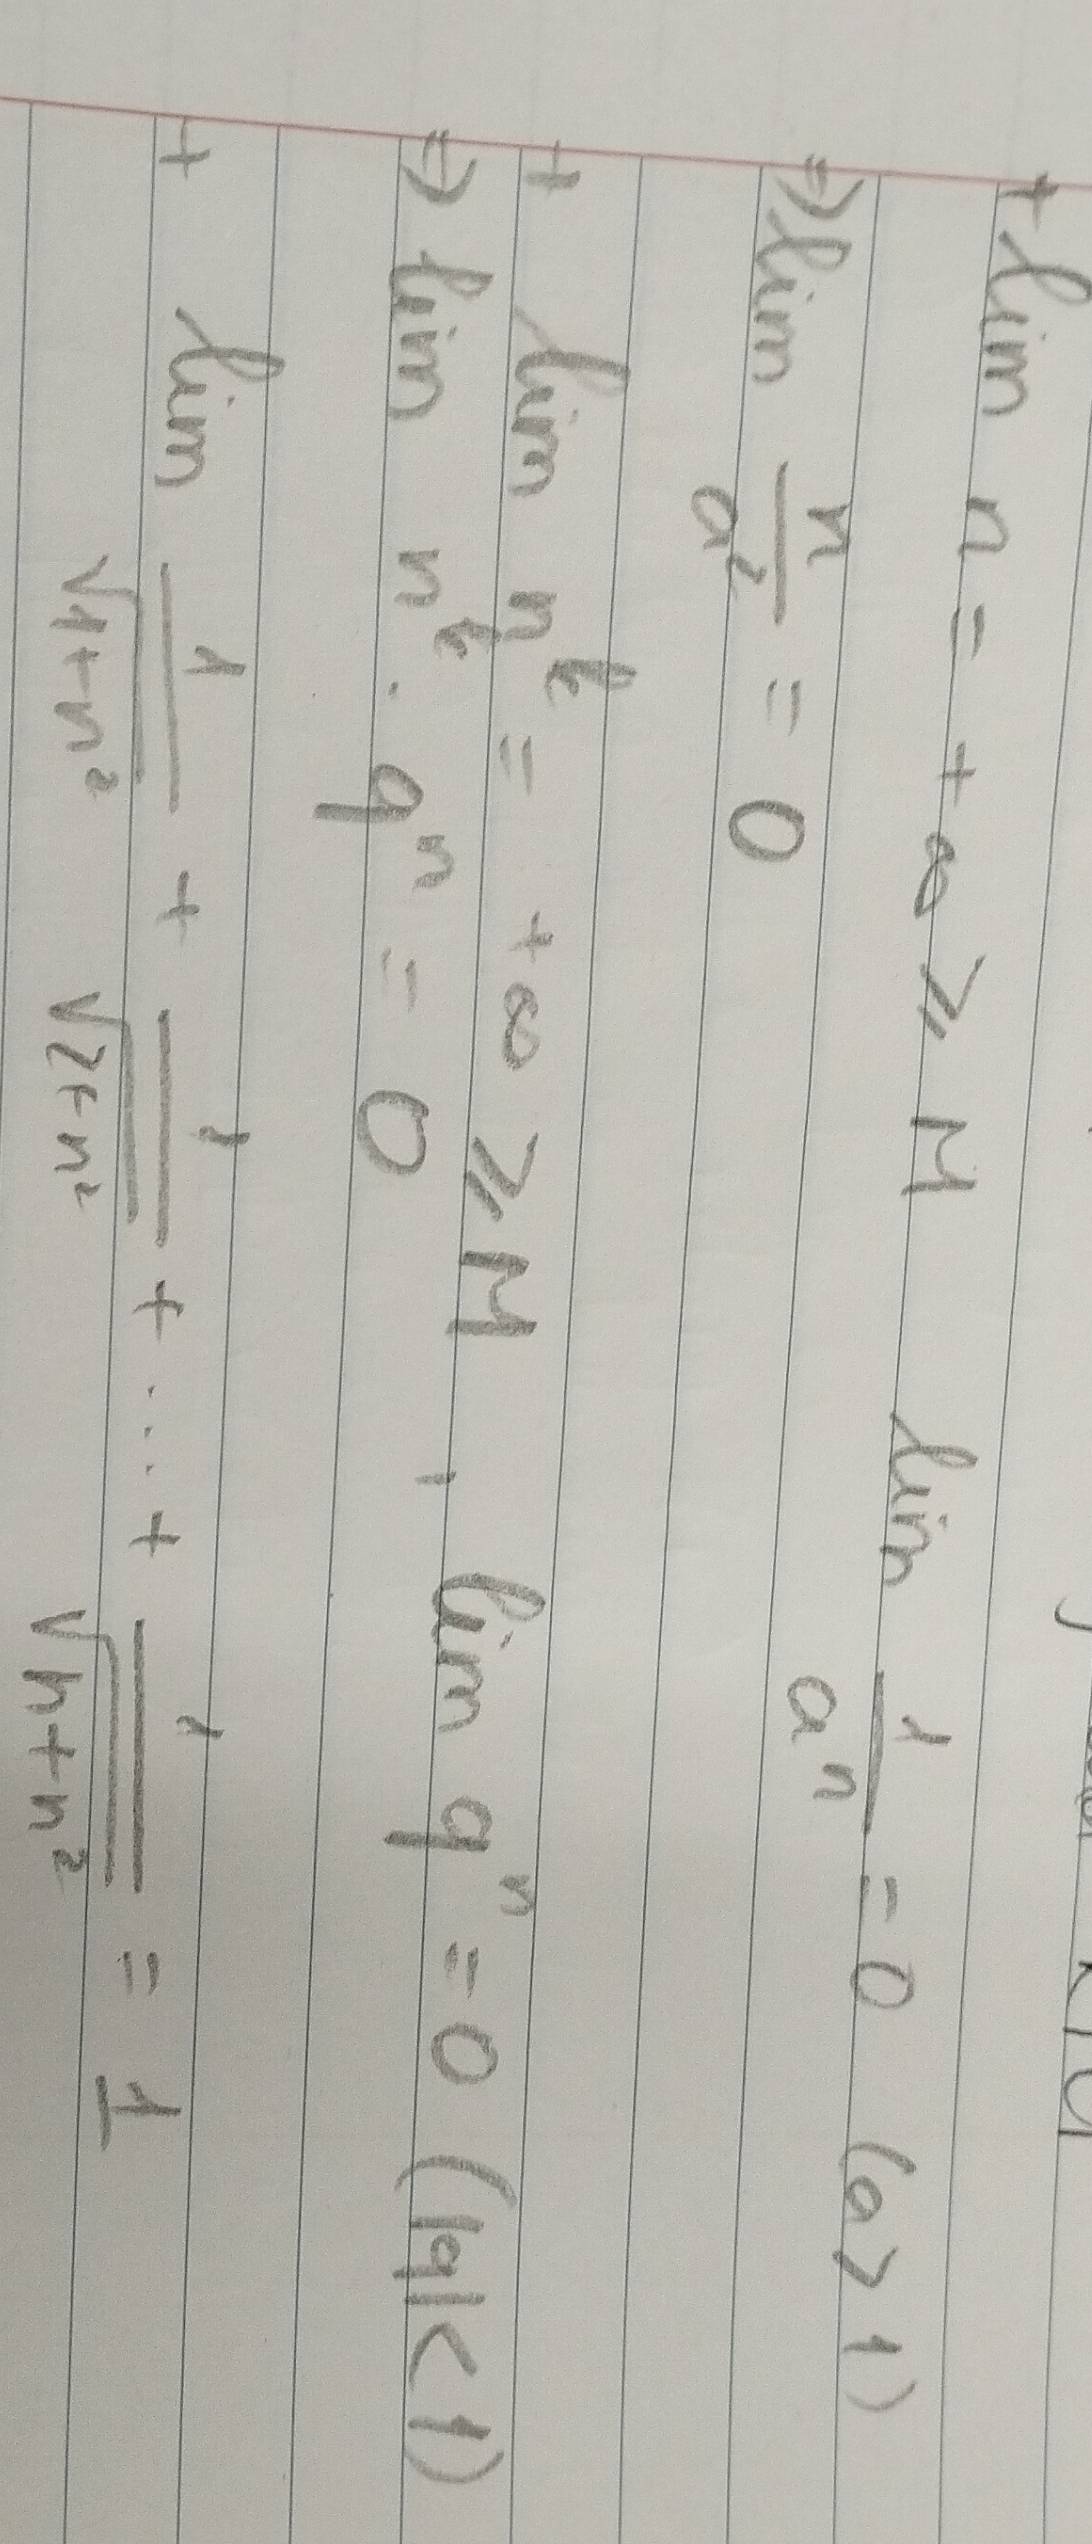 + lim n = +∞ ⩾ M lim 1/aⁿ = 0 (a > 1)
⇒ lim n/aⁿ = 0
+ lim nᵏ = +∞ ⩾ M, lim qⁿ = 0 (|q| < 1)
⇒ lim nᵏ . qⁿ = 0
+ lim 1/√(1+n²) + 1/√(2+n²) + ... + 1/√(n+n²) = 1